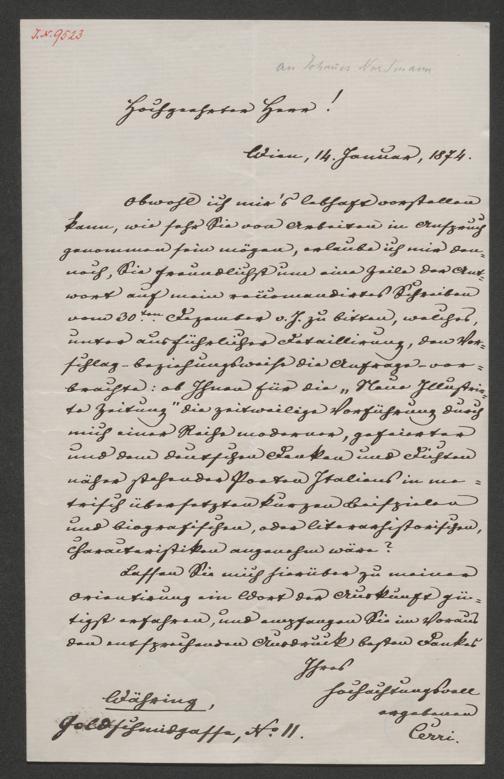 I.N. 9523
an Johannes Nordmann
Hochgeehrter Herr!
Wien, 14. Januar, 1874.
Obwohl ich mir's lebhaft vorstellen
kann, wie sehr Sie von Arbeiten in Anspruch
genommen sein mögen, erlaube ich mir den-
noch, Sie freundlichst um eine Zeile der Ant-
wort auf mein recomandirtes Schreiben
vom 30ten Dezember v. J. zu bitten, welches,
unter ausführlicher Detaillirung, den Vor-
schlag - beziehungsweise die Anfrage - vor-
brachte: ob Ihnen für die „Neue Illustrir-
te Zeitung" die zeitweilige Vorführung durch
mich einer Reihe moderner, gefeierter
und dem deutschen Denken und Dichten
näher stehender Poeten Italiens in me-
trisch übersetzten kurzen Beispielen
und biografischen, oder literarhistorischen,
Charakteristiken angenehm wäre?
Lassen Sie mich hierüber zu meiner
Orientirung ein Wort der Auskunft gü-
tigst erfahren, und empfangen Sie im Voraus
den entsprechenden Ausdruck besten Dankes
Ihres
hochachtungsvoll
ergebenen
Cerri.
Währing,
Goldschmidgasse, No 11.